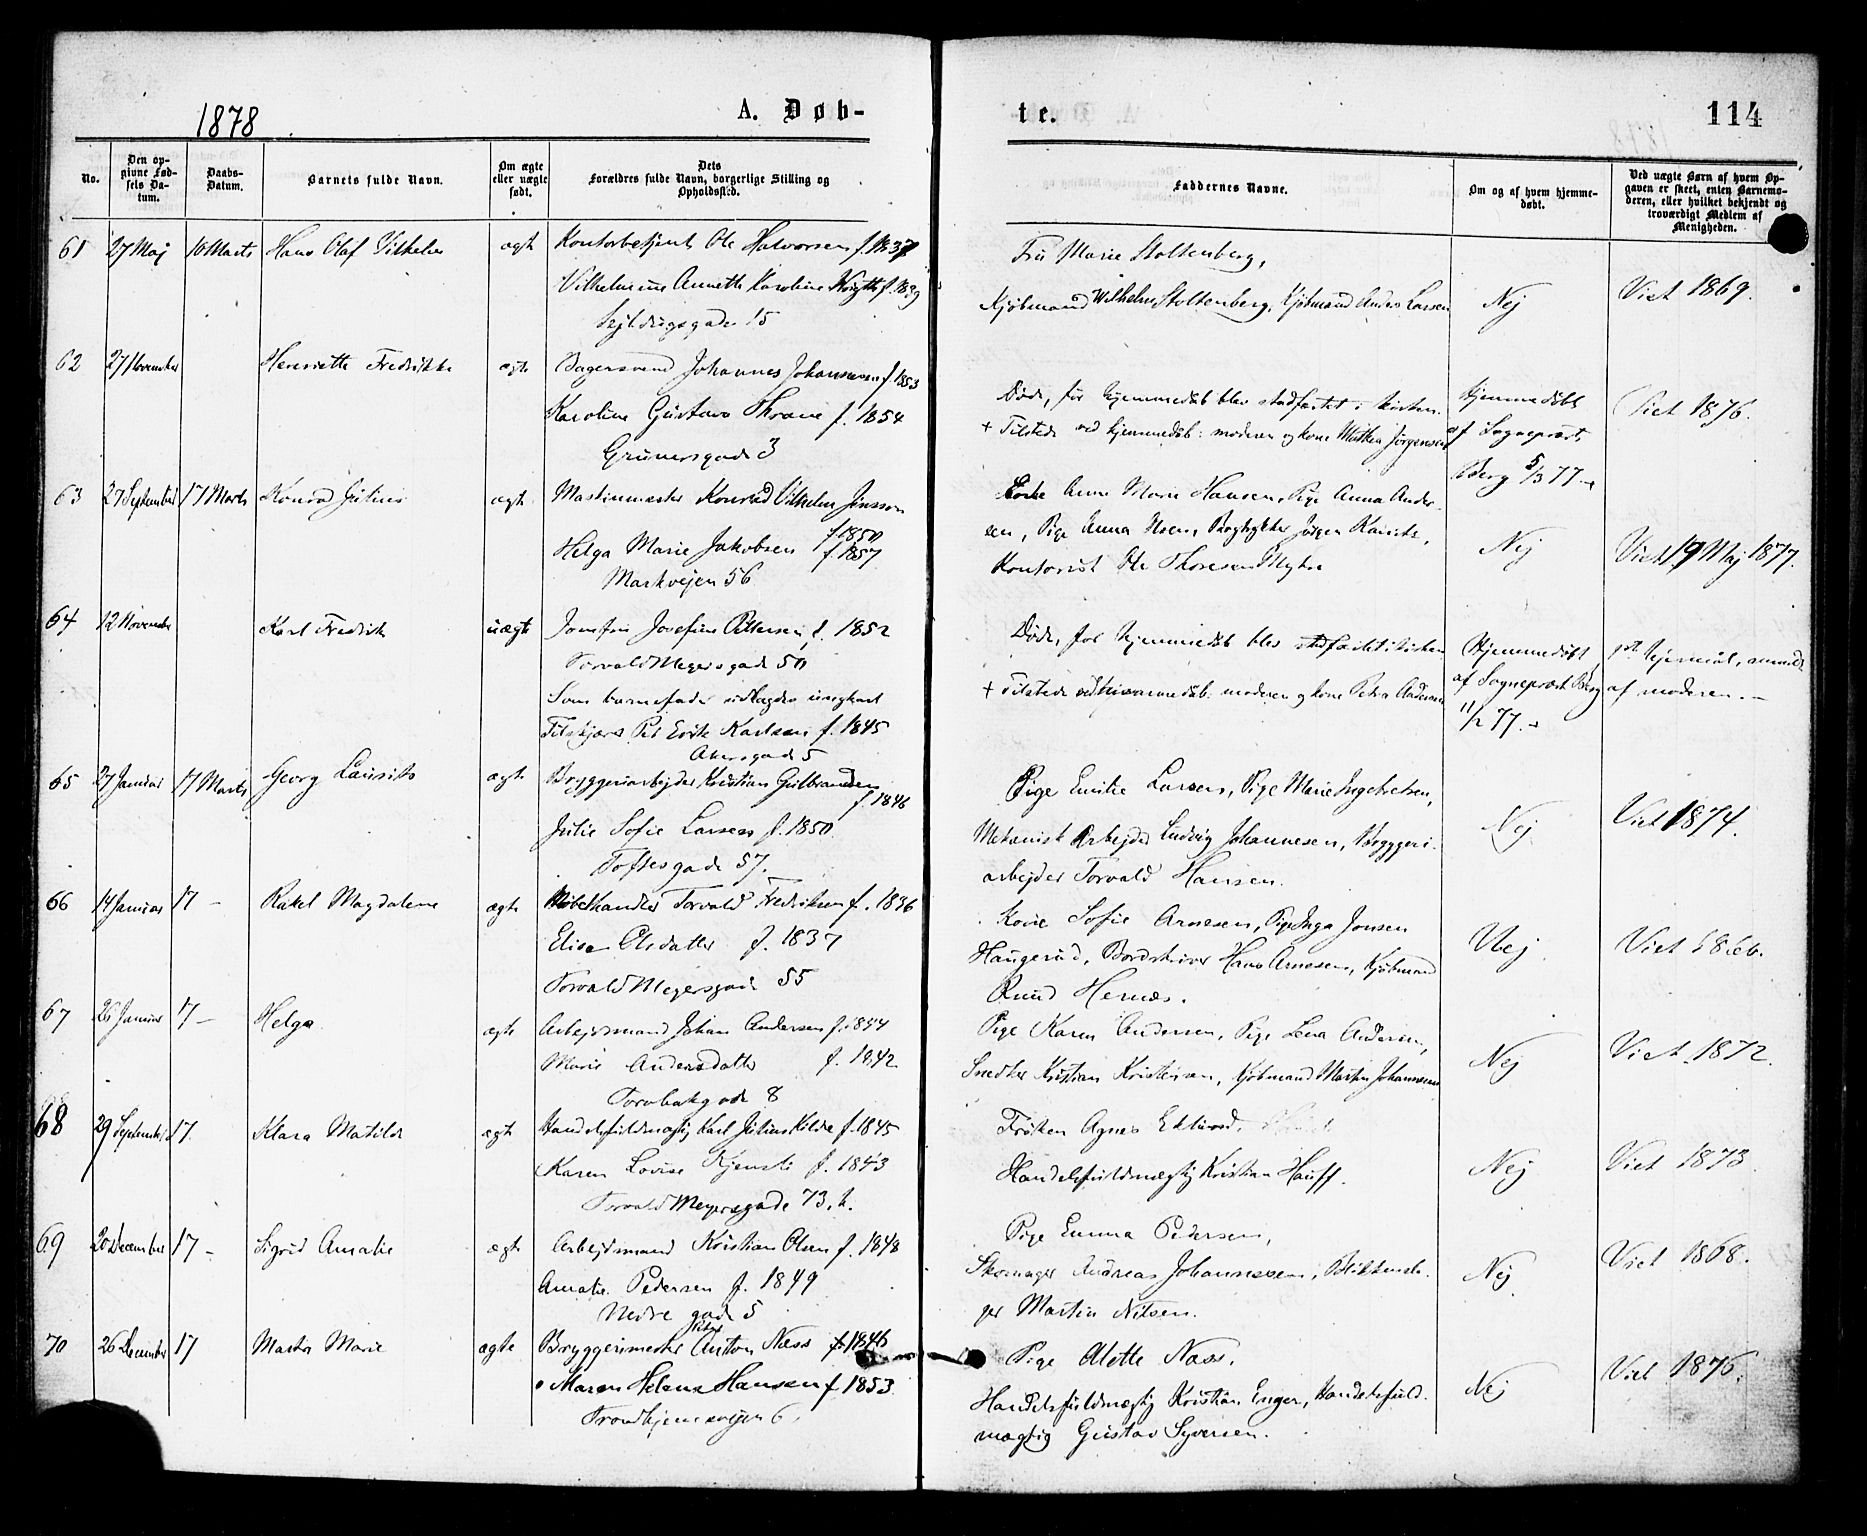 1878
A. Døb-
No.
Den op-
givne Fød-
sels Da-
tum.
Daabs-
Datum.
Barnets fulde Navn.
Om ægte
eller uægte
født.
Dets
Forældres fulde Navn, borgerlige Stilling og
Opholdssted.
61 27 Maj 10 Marts Hans Olaf Vilhelm ægte Kontorbetjent Ole Halvorsen f. 1837
Vilhelmine Annette Karoline f. 1839
15
62 27 November Henriette Fredrikke ægte Bagersvend Johannes Johannesen f. 1853
Karoline Gustava Thrane f. 1854
Grünersgade 3
63 27 September 17 Marts Konrad Julius ægte Maskinmester Konrad Vilhelm Jensson
f. 1850
Helga Marie Jakobsen f. 1857
Markvejen 56
64 12 November Karl Fredrik uægte Jomfru Josefine Pettersen f. 1852
Torvald Meyersgade 50
Som barnefader udlagdes ungkarl
Erik Karlsen f. 1845
Akersgade 5
65 27 Januar 17 Marts Georg Laurits ægte Bryggeriarbejder Kristian Gulbrandsen
f. 1846
Julie Sofie Larsen f. 1850
Toftesgade 57.
66 14 Januar 17 – Rakel Magdalene ægte Møbelhandler Torvald Fredriksen f. 1836
Elise Olsdatter f. 1837
Torvald Meyersgade 55
67 26 Januar 17 – Helga ægte Arbejdsmand Johan Andersen f. 1844
Marie Andersdatter f. 1842
8
68 29 September 17. Klara Matilde ægte Handelsfuldmægtig Karl Julius f. 1845
Karen Lovise f. 1843
Torvald Meyersgade 73. b.
69 20 December 17 – Sigrid Amalie ægte Arbejdsmand Kristian Olsen f. 1848
Amalie Pedersen f. 1849
Nedre gade 5
70 26 December 17 Marta Marie ægte Bryggerimester Anton Næss f. 1846
Maren Helene Hansen f. 1853.
Trondhjemsvejen 6.
te.
114
Faddernes Navne.
Om og af hvem hjemme-
døbt.
Ved uægte Børn af hvem Op-
gaven er skeet, enten Barnemo-
deren, eller hvilket bekjendt og
troværdigt Medlem af
Menigheden.
Fru Marie Stoltenberg,
Kjøbmand Wilhelm Stoltenberg, Kjøbmand Anders Larsen Nej Viet 1869.
Døde, før hjemmedåb blev stadfæstet i kirken. Hjemmedøbt Viet 1876.
+ Tilstede ved hjemmedåb: moderen og kone Jørgensen af Sogneprest
Berg 5/3 77.
Enke Anne Marie Hansen, Pige Anna Ander-
sen, Pige Anna Olsen, Bogtrykker Jørgen Nej Viet 19 Maj 1877.
Kontorist Ole Thoresen
Døde, før hjemmedåb blev stadfæstet i kirken Hjemmedøbt 1ste lejermål, anmeldt
+ Tilstede ved hjemmedåb: moderen og kone Petra Andersen af Sogneprest Berg af moderen. –
11/12 77.
Pige Emilie Larsen, Pige Marie Ingebretsen,
Mekanisk Arbejder Ludvig Johannesen, Bryggeri- Nej Viet 1874.
arbejder Torvald Hansen.
Kone Sofie Arnesen, Pige Inga Jonsen
Haugerud, Bordskriver Hans Arnesen, Kjøbmand Nej Viet 1866.
Knud Hernæs.
Pige Karen Andersen, Pige Lena Andersen,
Snedker Kristian Kristensen, Kjøbmand Martin Johannesen Nej Viet 1872.
Frøken Agnes Eklund.
Handelsfuldmægtig Kristian Hauff. Nej Viet 1873
Pige Emma Pedersen,
Skomager Andreas Johannesen, Blikkensla- Nej Viet 1868.
ger Martin Nilsen.
Pige Alette Næss.
Handelsfuldmægtig Kristian Enger, Handelsfuld- Nej Viet 1876.
mægtig Gustav Syversen.